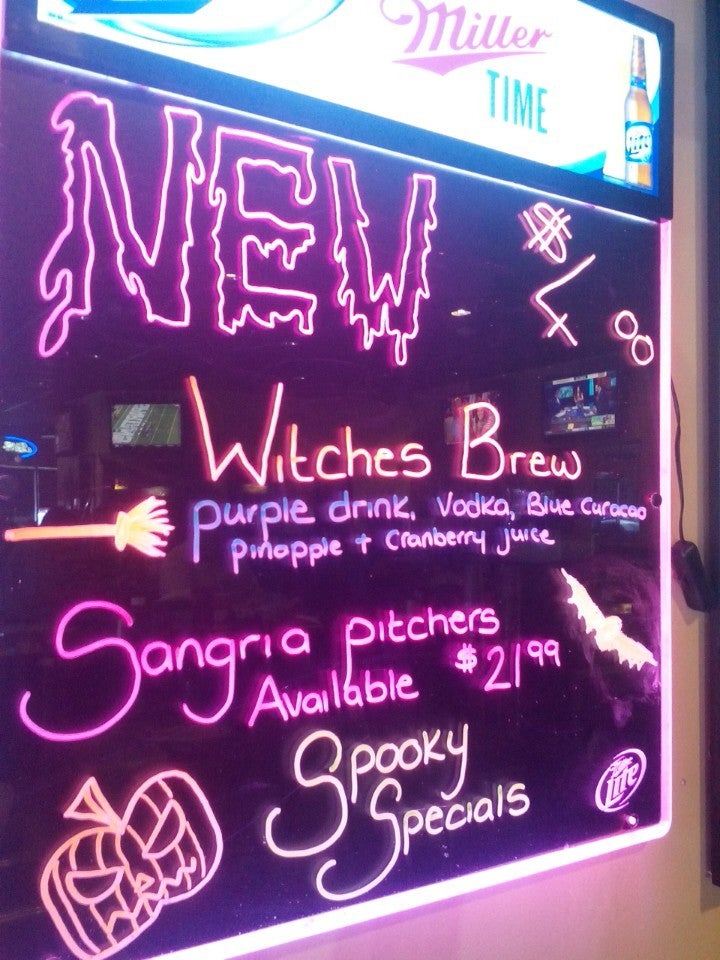 Miller
TIME
NEW
$4.00
Witches Brew
purple drink, Vodka, Blue Curacao
pinapple + cranberry juice
Sangria pitchers
Available $21.99
Spooky
Specials
Lite